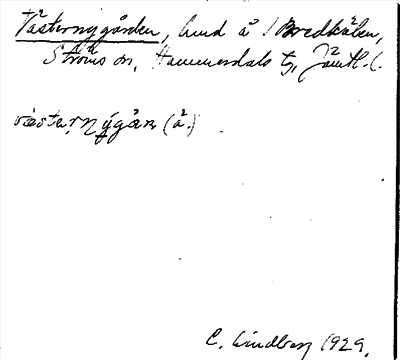 Västernygården, hmd å Bredkälen,
Ströms sn, Hammerdals tg, Jämtl. l.
væstəɳýgåɳ (å²)
C. Lindberg 1929.